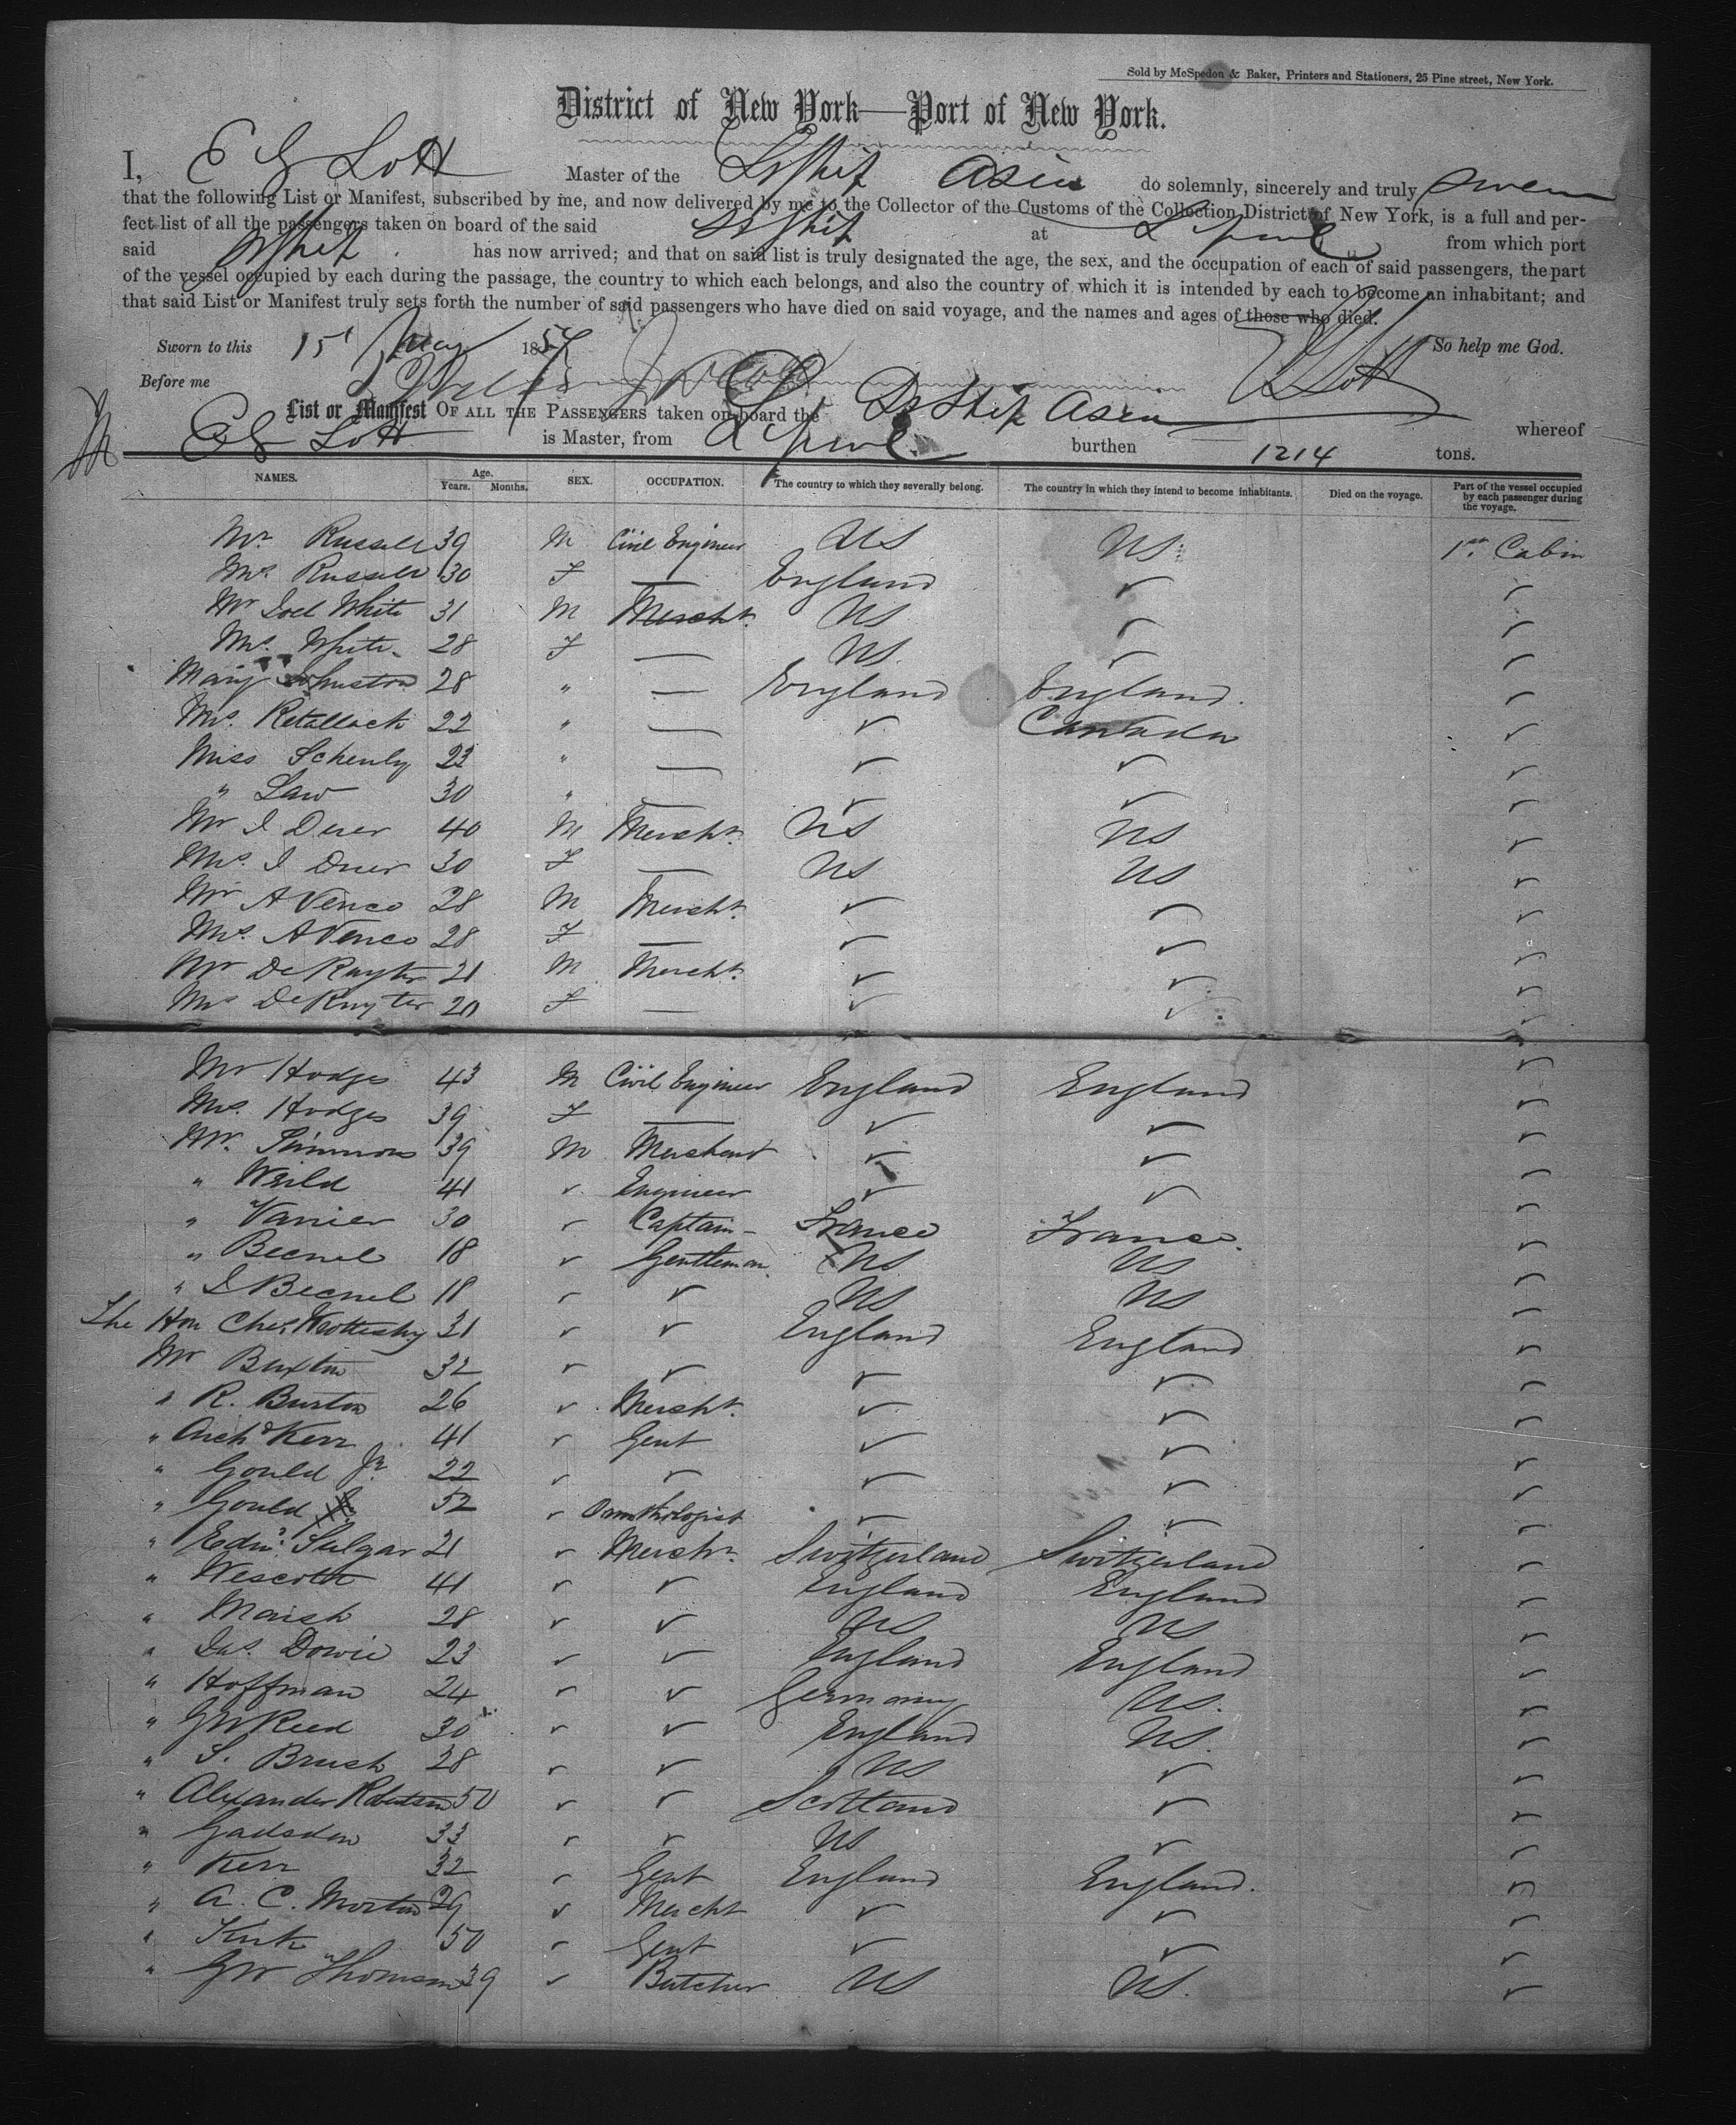 Sold by McSpedon & Baker, Printers and Stationers, 25 Pine street, New York.
District of New York—Port of New York.
I, E G Lott Master of the SShip Asia do solemnly, sincerely and truly swear
that the following List or Manifest, subscribed by me, and now delivered by me to the Collector of the Customs of the Collection District of New York, is a full and per-
fect list of all the passengers taken on board of the said SSShip at L'pool from which port
said SShip has now arrived; and that on said list is truly designated the age, the sex, and the occupation of each of said passengers, the part
of the vessel occupied by each during the passage, the country to which each belongs, and also the country of which it is intended by each to become an inhabitant; and
that said List or Manifest truly sets forth the number of said passengers who have died on said voyage, and the names and ages of those who died.
Sworn to this 15t May 1857 So help me God.
Before me E G Lott
List or Manifest OF ALL THE PASSENGERS taken on board the SsShip Asia whereof
E G Lott is Master, from L'pool burthen 1214 tons.
NAMES. Age. Years. Months. SEX. OCCUPATION. The country to which they severally belong. The country in which they intend to become inhabitants. Died on the voyage. Part of the vessel occupied by each passenger during the voyage.
Mr. Russell 39 M Civil Engineer US US. 1st Cabin
Mrs. Russell 30 F — England ✓ ✓
Mr Joel White 31 M Mercht. US ✓ ✓
Mrs. White 28 F — US. ✓ ✓
Mary Johnston 28 " — England England. ✓
Mrs. Retallack 22 " — ✓ Canada ✓
Miss Schenly 23 " — ✓ ✓ ✓
" Law 30 " — ✓ ✓ ✓
Mr I Duer 40 M Mercht. US US ✓
Mrs. I Duer 30 F — US US ✓
Mr A Venco 28 M Mercht. ✓ ✓ ✓
Mrs. A Venco 28 F — ✓ ✓ ✓
Mr De Ruyter 21 M Mercht. ✓ ✓ ✓
Mrs De Ruyter 20 F — ✓ ✓ ✓
Mr Hodges 43 M Civil Engineer England England ✓
Mrs. Hodges 39 F — ✓ ✓ ✓
Mr. Simmons 39 M Merchant ✓ ✓ ✓
" Weild 41 ✓ Engineer ✓ ✓ ✓
" Vanier 30 ✓ Captain France France. ✓
" Becnel 18 ✓ Gentleman. US US ✓
" I Becnel 18 ✓ ✓ US US ✓
The Hon Chas. Wrottesley 31 ✓ ✓ England England ✓
Mr Buxton 32 ✓ ✓ ✓ ✓ ✓
" R. Burton 26 ✓ Mercht. ✓ ✓ ✓
" Archd Kerr 41 ✓ Gent ✓ ✓ ✓
" Gould Jr. 22 ✓ ✓ ✓ ✓ ✓
" Gould 52 ✓ Ornithologist ✓ ✓ ✓
" Edw. Sulgar 21 ✓ Mercht. Switzerland Switzerland ✓
" Wescott 41 ✓ ✓ England England ✓
" Marsh 28 ✓ ✓ US US ✓
" Jas. Dowie 23 ✓ ✓ England England ✓
" Hoffman 24 ✓ ✓ Germany US. ✓
" GW Reed 30 ✓ ✓ England US. ✓
" S. Brush 28 ✓ ✓ US ✓ ✓
" Alexander Robertson 50 ✓ ✓ Scotland ✓ ✓
" Gadsden 33 ✓ ✓ US ✓ ✓
" Kerr 32 ✓ Gent England England. ✓
" A. C. Morton 29 ✓ Mercht ✓ ✓ ✓
" Kirk 50 ✓ Gent ✓ ✓ ✓
" GW Thomson 39 ✓ Butcher US US. ✓